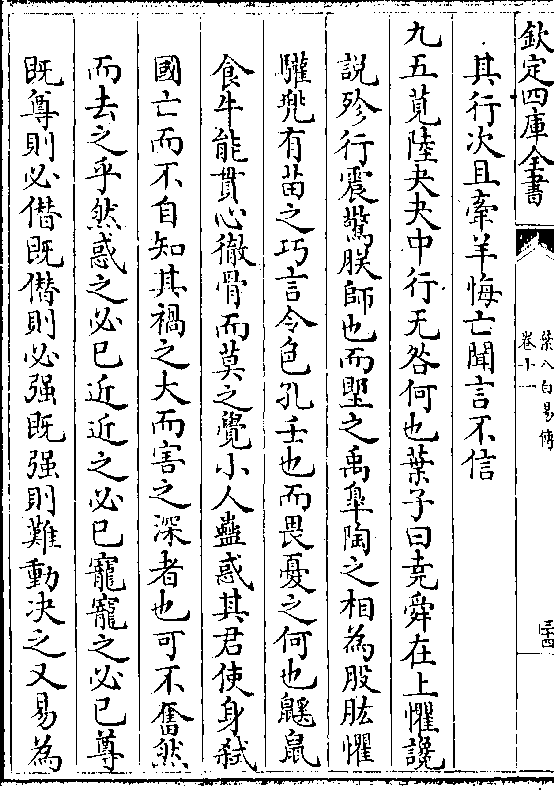 欽定四庫全書
葉八白易傳
卷十一
三四
其行次且牽羊悔亡聞言不信
九五莧陸夬夬中行无咎何也葉子曰堯舜在上懼讒
說殄行震驚朕師也而堲之禹臯陶之相為股肱懼
驩兠有苗之巧言令色孔壬也而畏憂之何也鼷鼠
食牛能貫心徹骨而莫之覺小人蠱惑其君使身弑
國亡而不自知其禍之大而害之深者也可不奮然
而去之乎然惑之必已近近之必已寵寵之必已尊
既尊則必僣既僣則必强既强則難動決之又易為